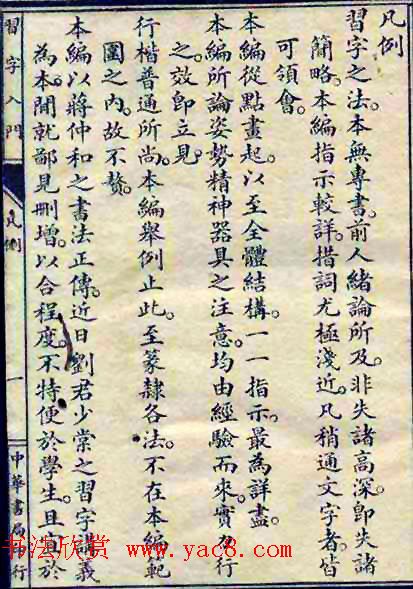 凡例
習字之法。本無專書。前人緒論所及。非失諸高深。卽失諸
簡略。本編指示較詳。措詞尤極淺近。凡稍通文字者。皆
可領會。
本編從點畫起。以至全體結構。一一指示。最為詳盡。
本編所論姿勢精神器具之注意。均由經驗而來。實力行
之。效卽立見。
行楷普通所尚。本編舉例止此。至篆隸各法。不在本編範
圍之內。故不贅。
本編以蔣仲和之書法正傳。近日劉君少棠之習字講義
為本。間就鄙見刪增。以合程度。不特便於學生。且宜於
習字入門
凡例
一
中華書局印行
书法欣赏 www.yac8.com